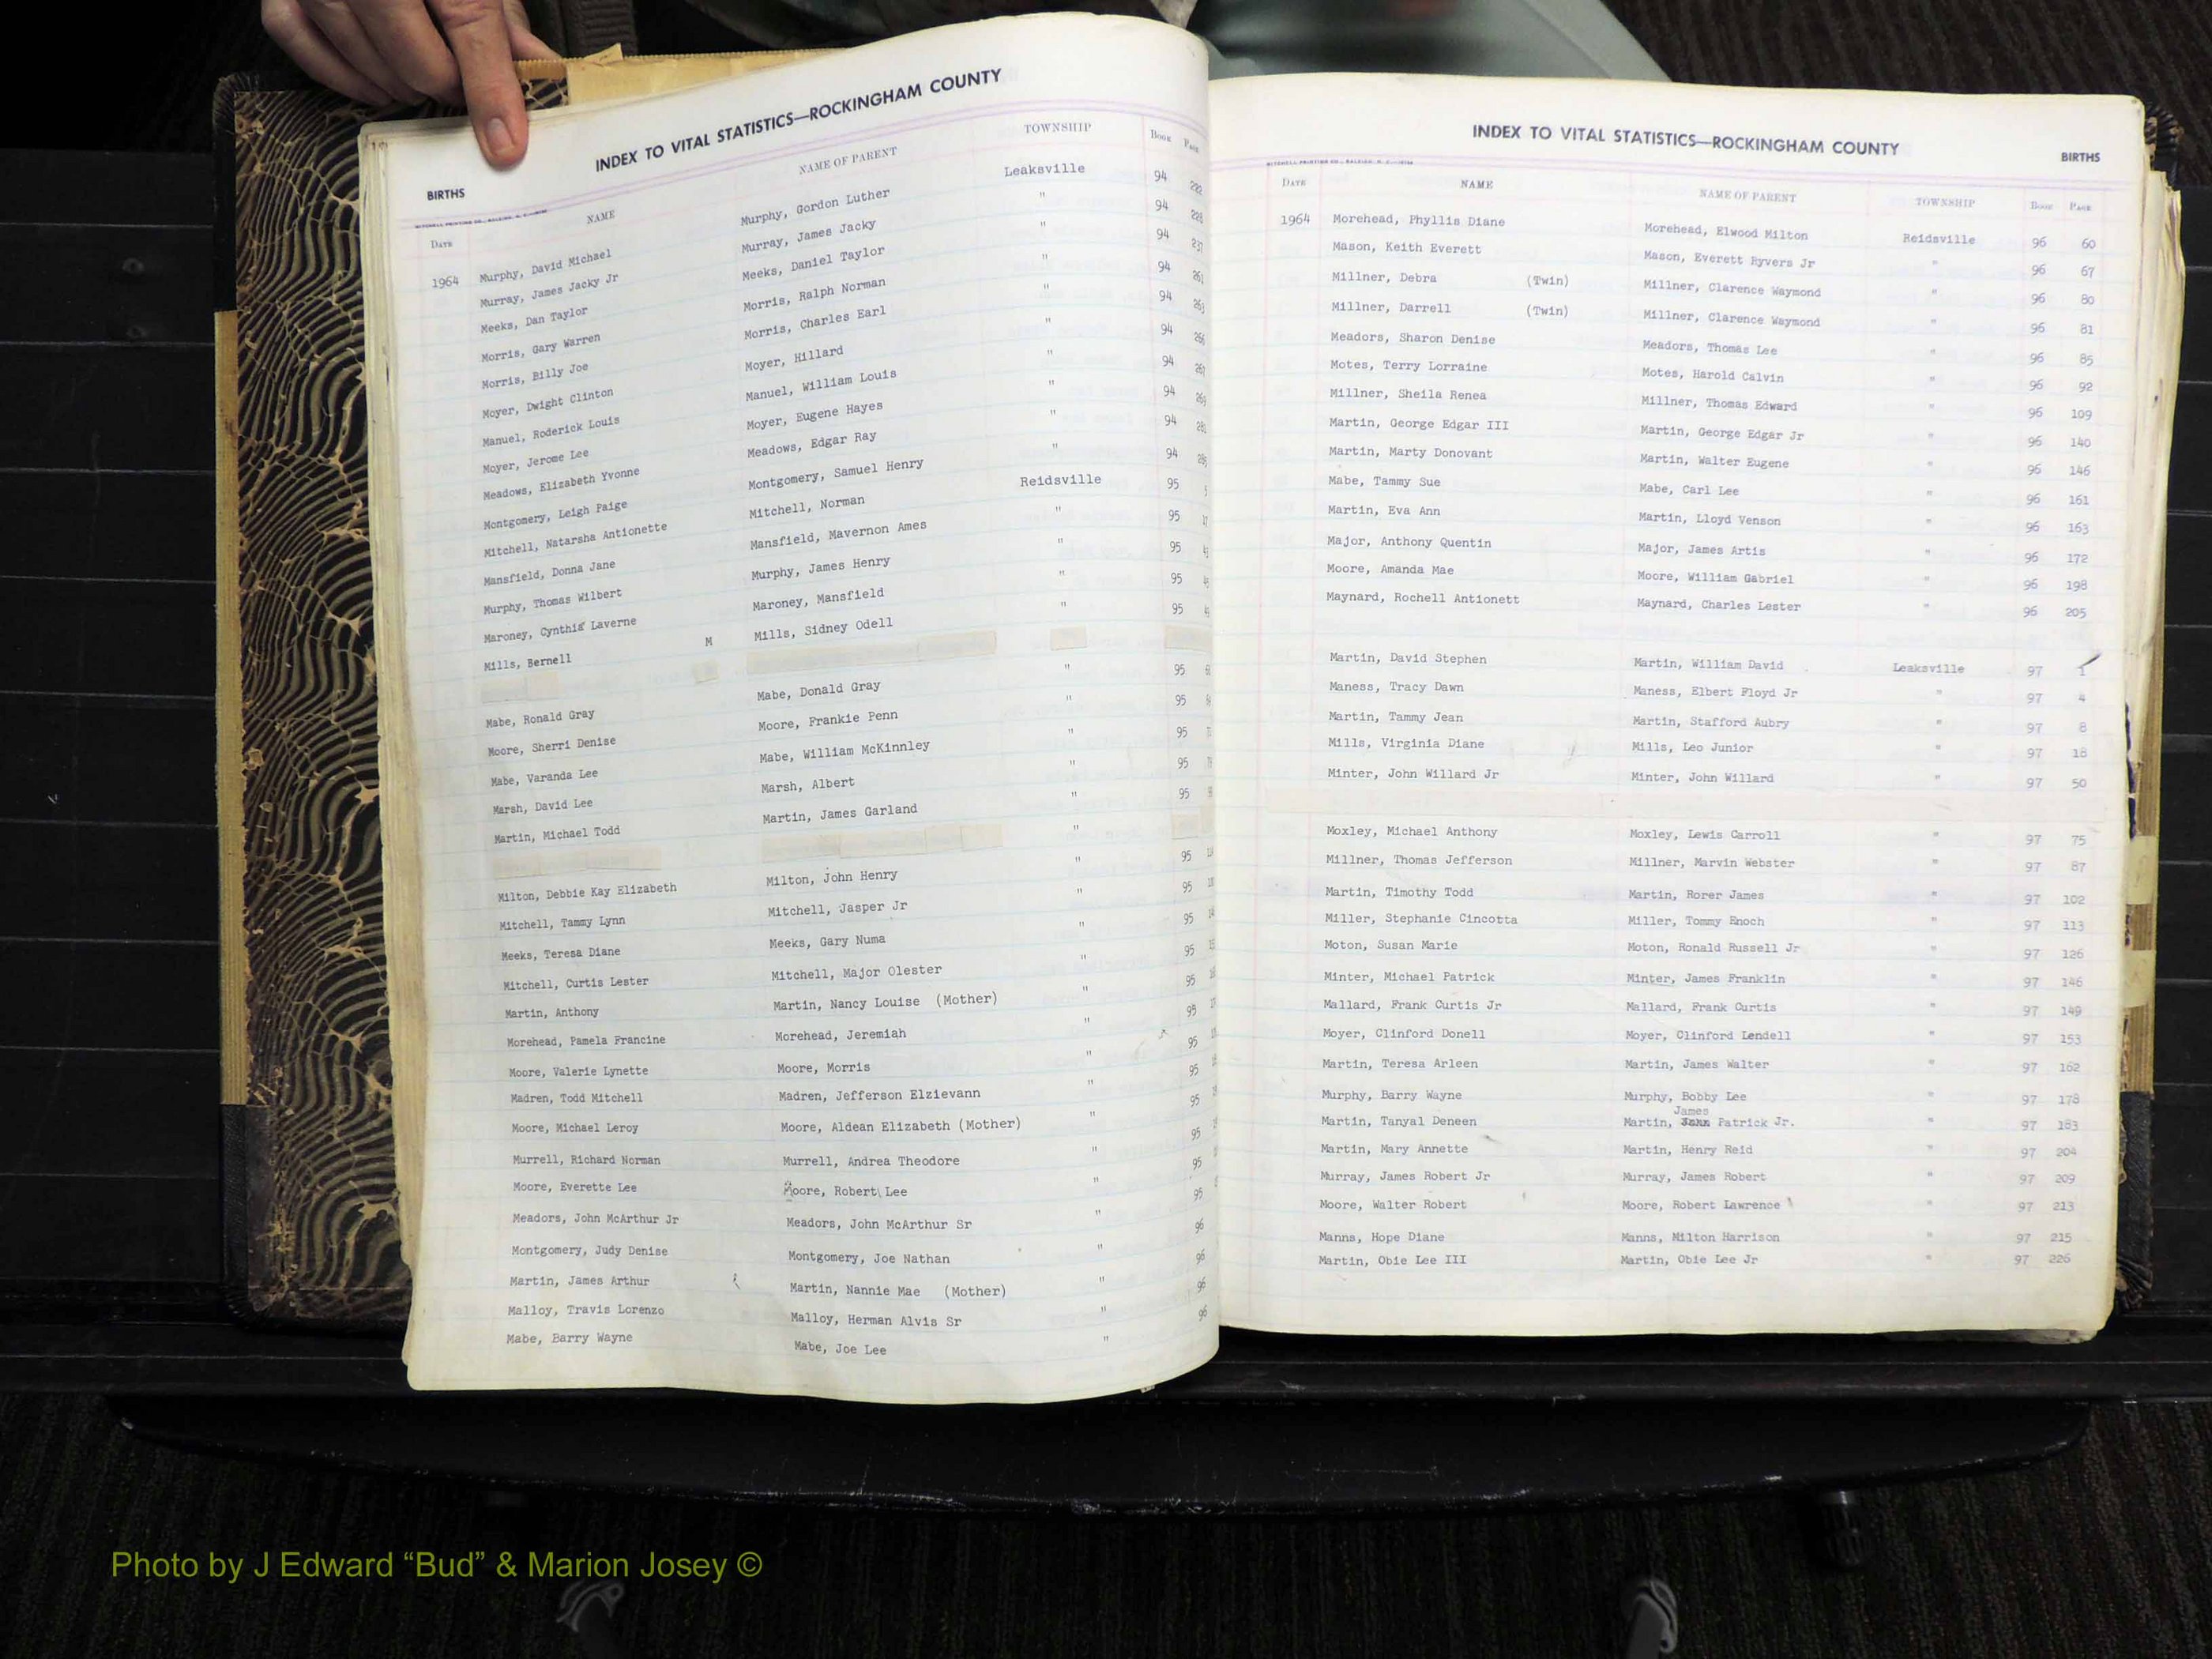 INDEX TO VITAL STATISTICS—ROCKINGHAM COUNTY
BIRTHS
DATE NAME NAME OF PARENT TOWNSHIP BOOK PAGE
1964 Murphy, David Michael Murphy, Gordon Luther Leaksville 94
Murray, James Jacky Jr Murray, James Jacky " 94
Meeks, Dan Taylor Meeks, Daniel Taylor " 94 237
Morris, Gary Warren Morris, Ralph Norman " 94 261
Morris, Billy Joe Morris, Charles Earl " 94 263
Moyer, Dwight Clinton Moyer, Hillard " 94
Manuel, Roderick Louis Manuel, William Louis " 94
Moyer, Jerome Lee Moyer, Eugene Hayes " 94
Meadows, Elizabeth Yvonne Meadows, Edgar Ray " 94
Montgomery, Leigh Paige Montgomery, Samuel Henry " 94
Mitchell, Natarsha Antionette Mitchell, Norman Reidsville 95
Mansfield, Donna Jane Mansfield, Mavernon Ames " 95
Murphy, Thomas Wilbert Murphy, James Henry " 95
Maroney, Cynthia Laverne Maroney, Mansfield " 95
Mills, Bernell M Mills, Sidney Odell " 95
Mabe, Ronald Gray Mabe, Donald Gray " 95
Moore, Sherri Denise Moore, Frankie Penn " 95
Mabe, Varanda Lee Mabe, William McKinnley " 95
Marsh, David Lee Marsh, Albert " 95
Martin, Michael Todd Martin, James Garland " 95
"
Milton, Debbie Kay Elizabeth Milton, John Henry " 95
Mitchell, Tammy Lynn Mitchell, Jasper Jr " 95
Meeks, Teresa Diane Meeks, Gary Numa " 95
Mitchell, Curtis Lester Mitchell, Major Olester " 95
Martin, Anthony Martin, Nancy Louise (Mother) " 95
Morehead, Pamela Francine Morehead, Jeremiah " 95
Moore, Valerie Lynette Moore, Morris " 95
Madren, Todd Mitchell Madren, Jefferson Elzievann " 95
Moore, Michael Leroy Moore, Aldean Elizabeth (Mother) " 95
Murrell, Richard Norman Murrell, Andrea Theodore " 95
Moore, Everette Lee Moore, Robert Lee " 95
Meadors, John McArthur Jr Meadors, John McArthur Sr " 95
Montgomery, Judy Denise Montgomery, Joe Nathan " 96
Martin, James Arthur Martin, Nannie Mae (Mother) " 96
Malloy, Travis Lorenzo Malloy, Herman Alvis Sr " 96
Mabe, Barry Wayne Mabe, Joe Lee " 96
INDEX TO VITAL STATISTICS—ROCKINGHAM COUNTY
BIRTHS
DATE NAME NAME OF PARENT TOWNSHIP BOOK PAGE
1964 Morehead, Phyllis Diane Morehead, Elwood Milton Reidsville 96 60
Mason, Keith Everett Mason, Everett Ryvers Jr " 96 67
Millner, Debra (Twin) Millner, Clarence Waymond " 96 80
Millner, Darrell (Twin) Millner, Clarence Waymond " 96 81
Meadors, Sharon Denise Meadors, Thomas Lee " 96 85
Motes, Terry Lorraine Motes, Harold Calvin " 96 92
Millner, Sheila Renea Millner, Thomas Edward " 96 109
Martin, George Edgar III Martin, George Edgar Jr " 96 140
Martin, Marty Donovant Martin, Walter Eugene " 96 146
Mabe, Tammy Sue Mabe, Carl Lee " 96 161
Martin, Eva Ann Martin, Lloyd Venson " 96 163
Major, Anthony Quentin Major, James Artis " 96 172
Moore, Amanda Mae Moore, William Gabriel " 96 198
Maynard, Rochell Antionett Maynard, Charles Lester 96 205
Martin, David Stephen Martin, William David Leaksville 97 1
Maness, Tracy Dawn Maness, Elbert Floyd Jr " 97 4
Martin, Tammy Jean Martin, Stafford Aubry " 97 8
Mills, Virginia Diane Mills, Leo Junior " 97 18
Minter, John Willard Jr Minter, John Willard " 97 50
Moxley, Michael Anthony Moxley, Lewis Carroll " 97 75
Millner, Thomas Jefferson Millner, Marvin Webster " 97 87
Martin, Timothy Todd Martin, Rorer James " 97 102
Miller, Stephanie Cincotta Miller, Tommy Enoch " 97 113
Moton, Susan Marie Moton, Ronald Russell Jr " 97 126
Minter, Michael Patrick Minter, James Franklin " 97 146
Mallard, Frank Curtis Jr Mallard, Frank Curtis " 97 149
Moyer, Clinford Donell Moyer, Clinford Lendell " 97 153
Martin, Teresa Arleen Martin, James Walter " 97 162
Murphy, Barry Wayne Murphy, Bobby Lee " 97 178
James
Martin, Tanyal Deneen Martin, Patrick Jr. " 97 183
Martin, Mary Annette Martin, Henry Reid " 97 204
Murray, James Robert Jr Murray, James Robert " 97 209
Moore, Walter Robert Moore, Robert Lawrence " 97 213
Manns, Hope Diane Manns, Milton Harrison " 97 215
Martin, Obie Lee III Martin, Obie Lee Jr " 97 226
Photo by J Edward “Bud” & Marion Josey ©